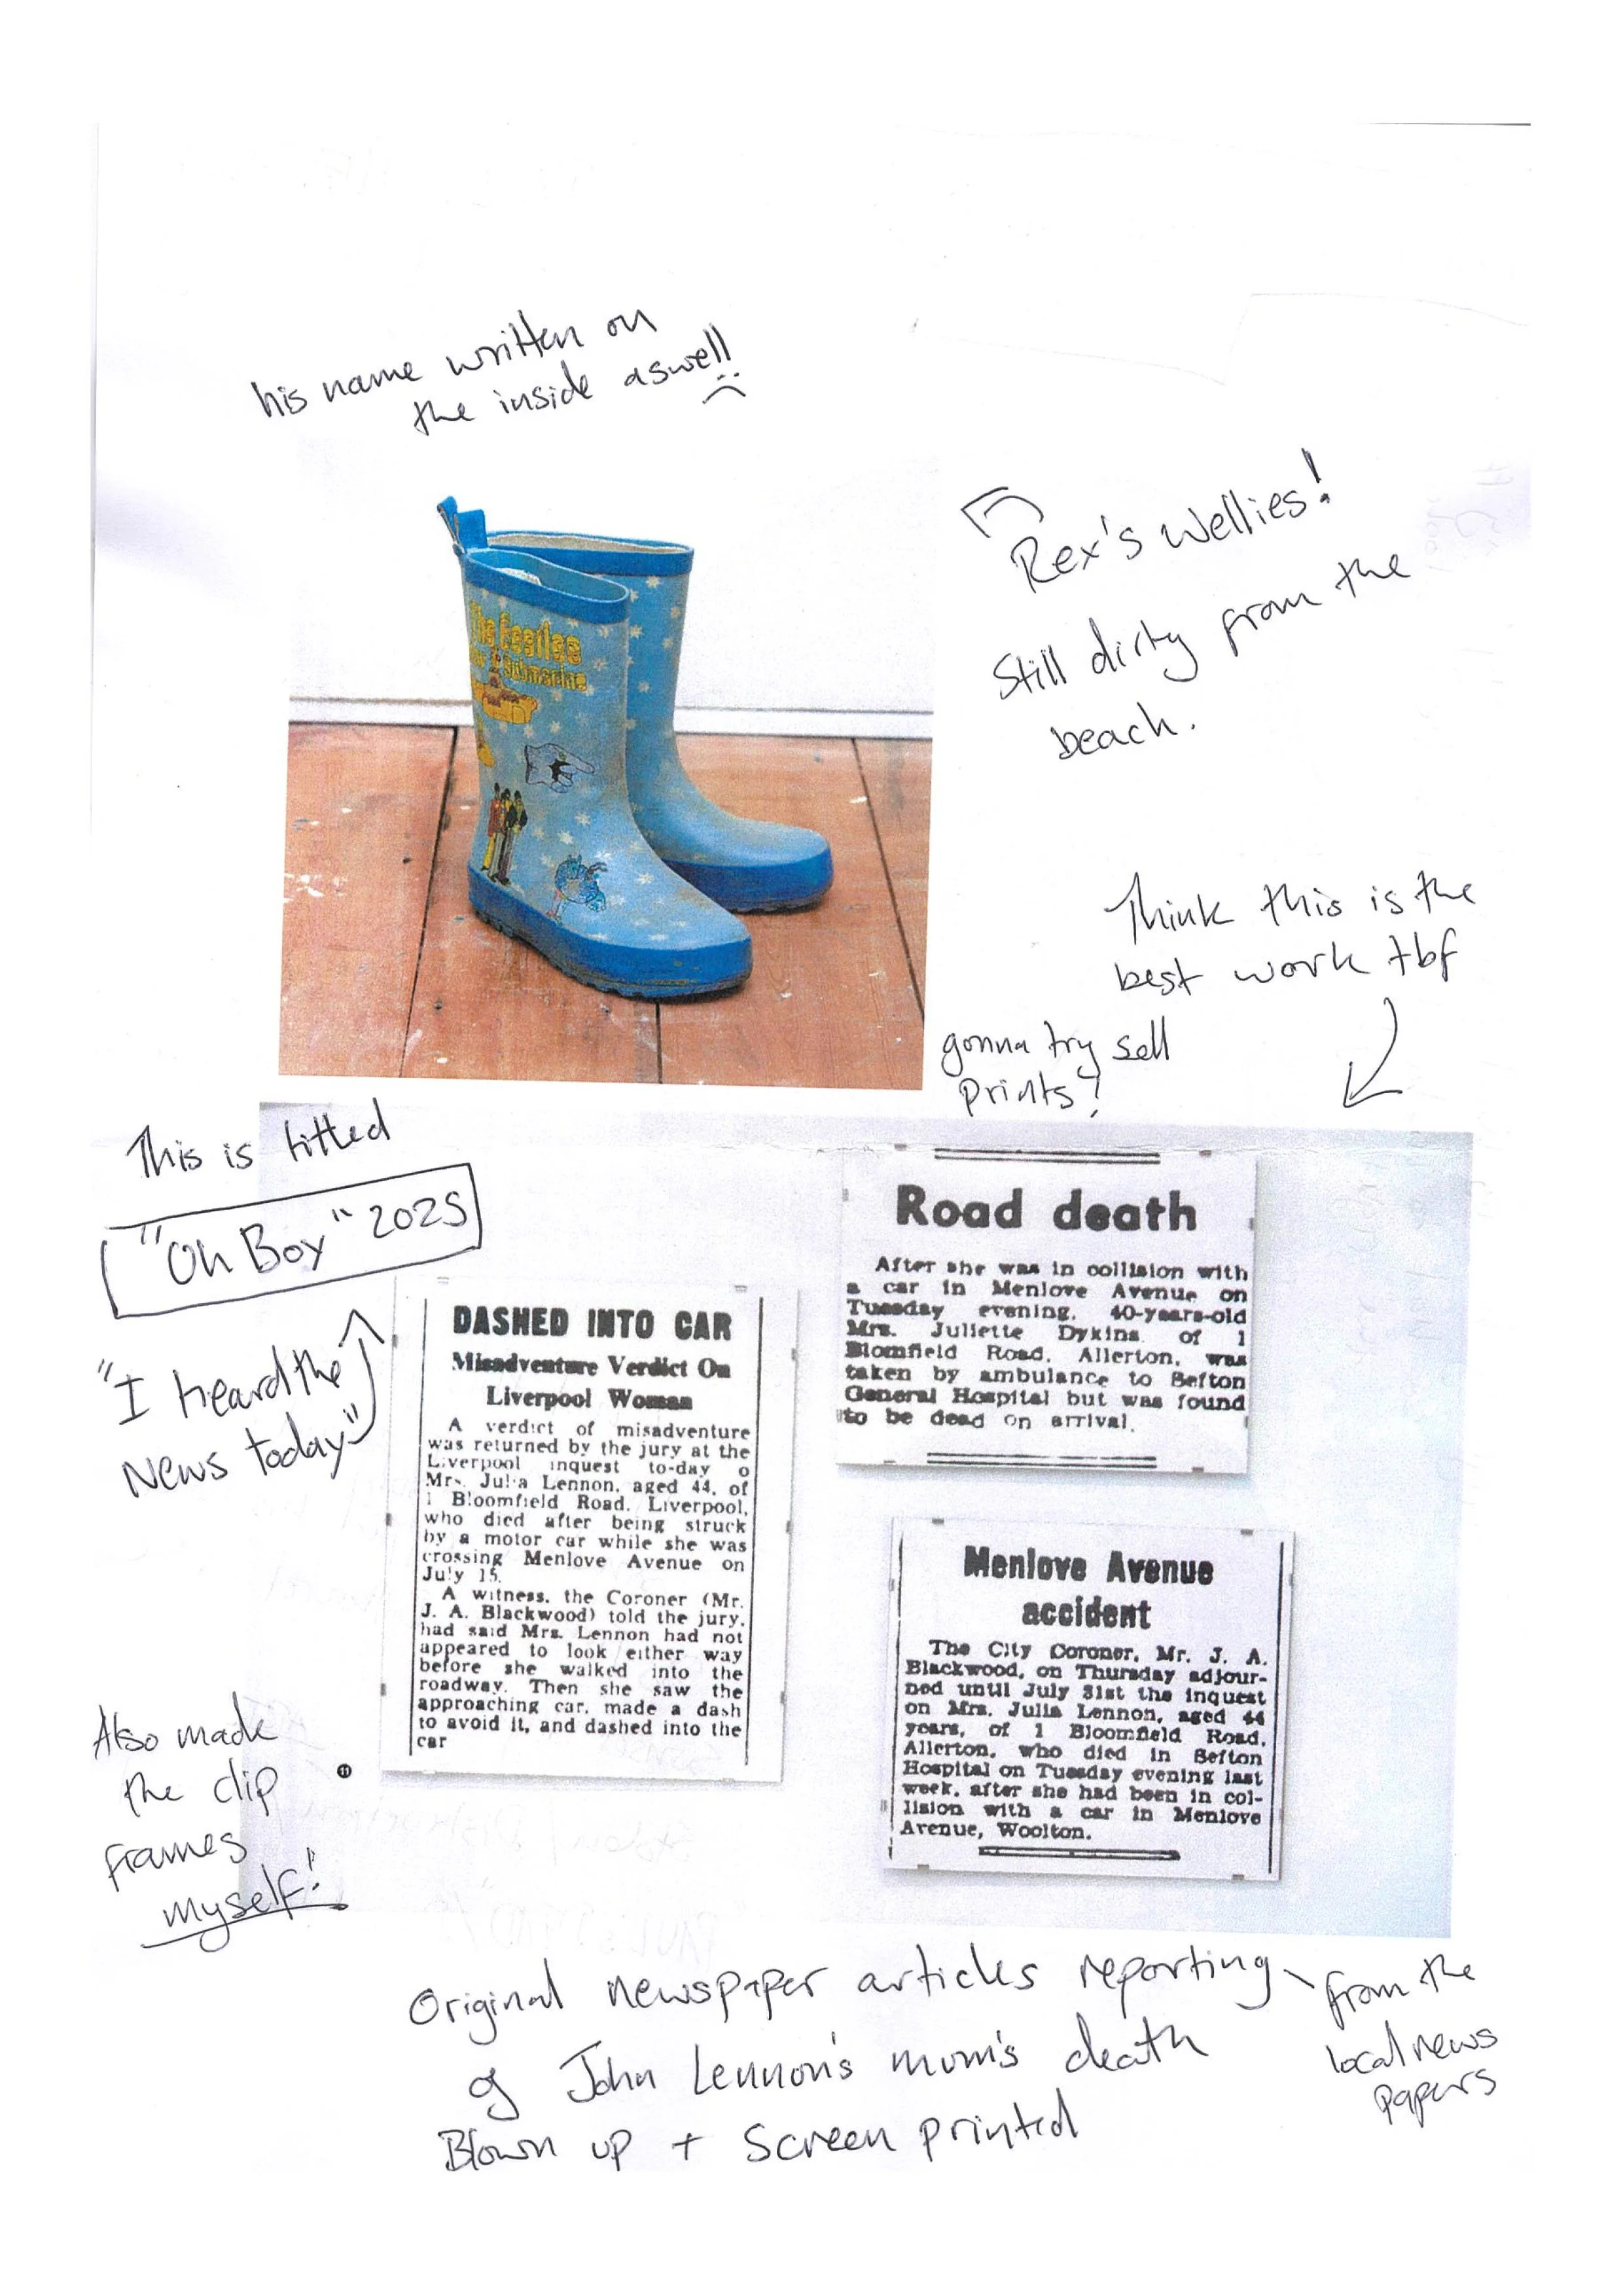 his name written on
the inside aswell!!
Rex's wellies!
Still dirty from the
beach.
The Beatles
Submarine
Think this is the
best work tbf
gonna try sell
prints?
This is titled
"Oh Boy" 2025
"I heard the
News today"
Road death
After she was in collision with
a car in Menlove Avenue on
Tuesday evening, 40-years-old
Mrs. Juliette Dykins, of 1
Blomfield Road, Allerton, was
taken by ambulance to Sefton
General Hospital but was found
to be dead on arrival.
DASHED INTO CAR
Misadventure Verdict On
Liverpool Woman
A verdict of misadventure
was returned by the jury at the
Liverpool inquest to-day o
Mrs. Julia Lennon, aged 44, of
1 Bloomfield Road, Liverpool,
who died after being struck
by a motor car while she was
crossing Menlove Avenue on
July 15.
A witness, the Coroner (Mr.
J. A. Blackwood) told the jury,
had said Mrs. Lennon had not
appeared to look either way
before she walked into the
roadway. Then she saw the
approaching car, made a dash
to avoid it, and dashed into the
car
Menlove Avenue
accident
The City Coroner, Mr. J. A.
Blackwood, on Thursday adjour-
ned until July 31st the inquest
on Mrs. Julia Lennon, aged 44
years, of 1 Bloomfield Road,
Allerton, who died in Sefton
Hospital on Tuesday evening last
week, after she had been in col-
lision with a car in Menlove
Avenue, Woolton.
Also made
the clip
frames
myself!
Original newspaper articles reporting
of John Lennon's mum's death
Blown up + Screen printed
from the
local news
papers